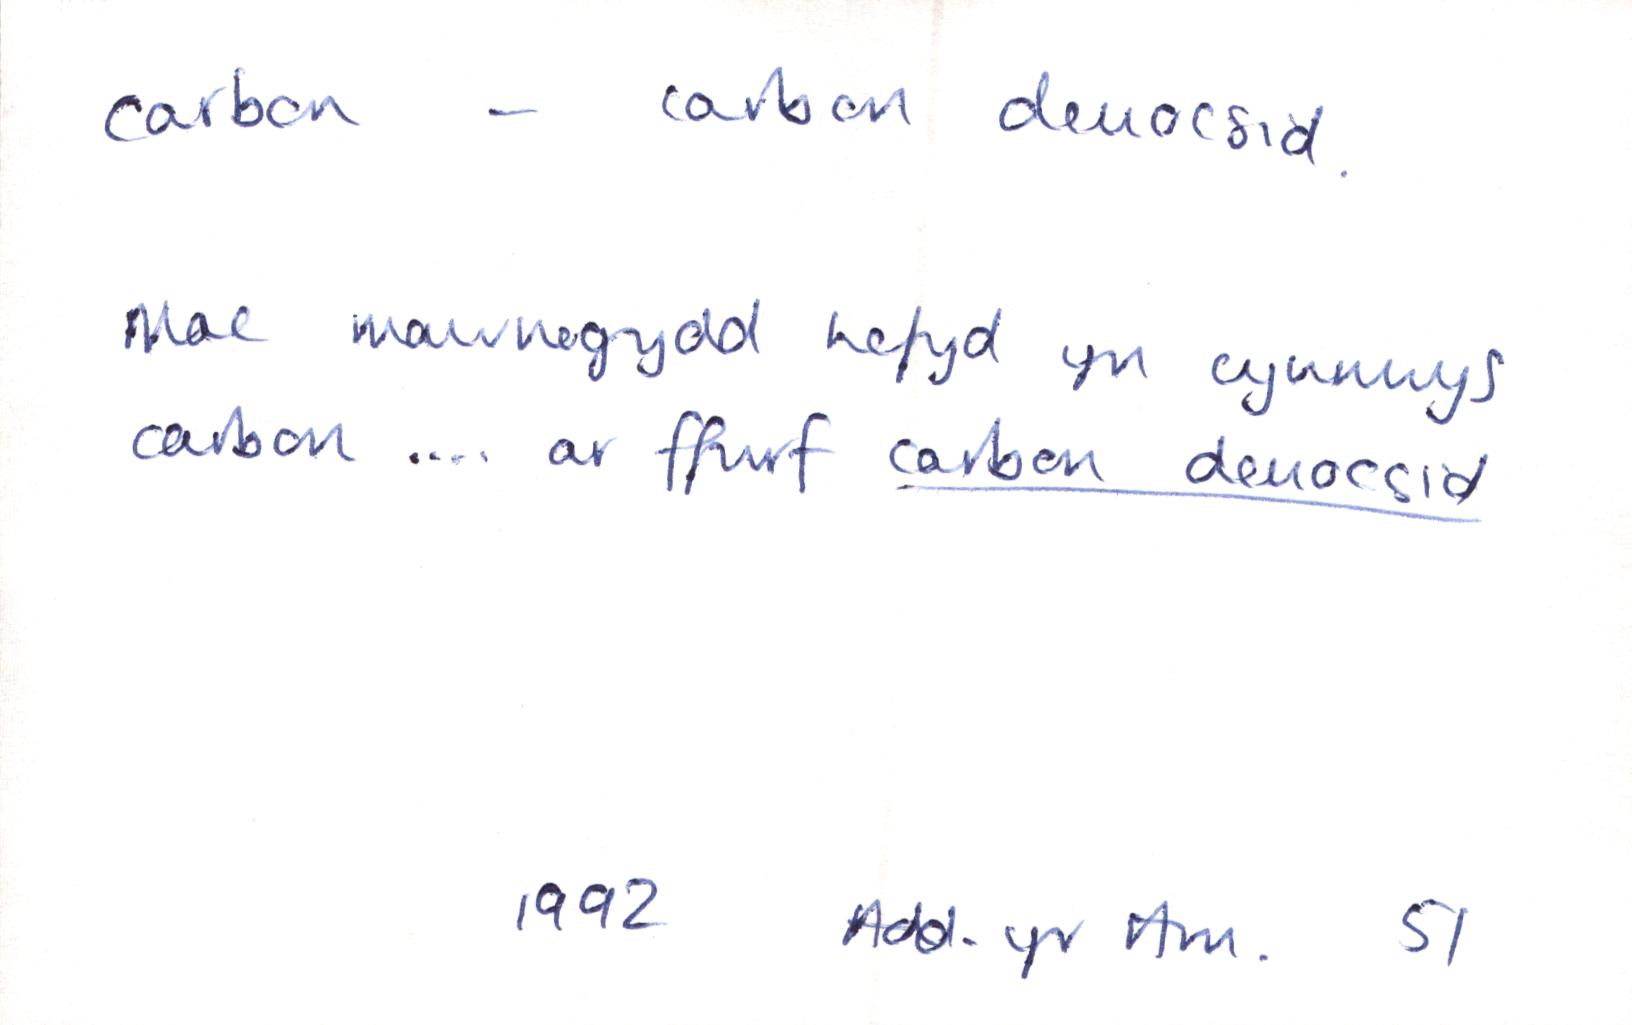 carbon - carbon deuocsid.
Mae mawnogydd hefyd yn cynnwys
carbon .... ar ffurf carbon deuocsid
1992 Add. yr Am. 51